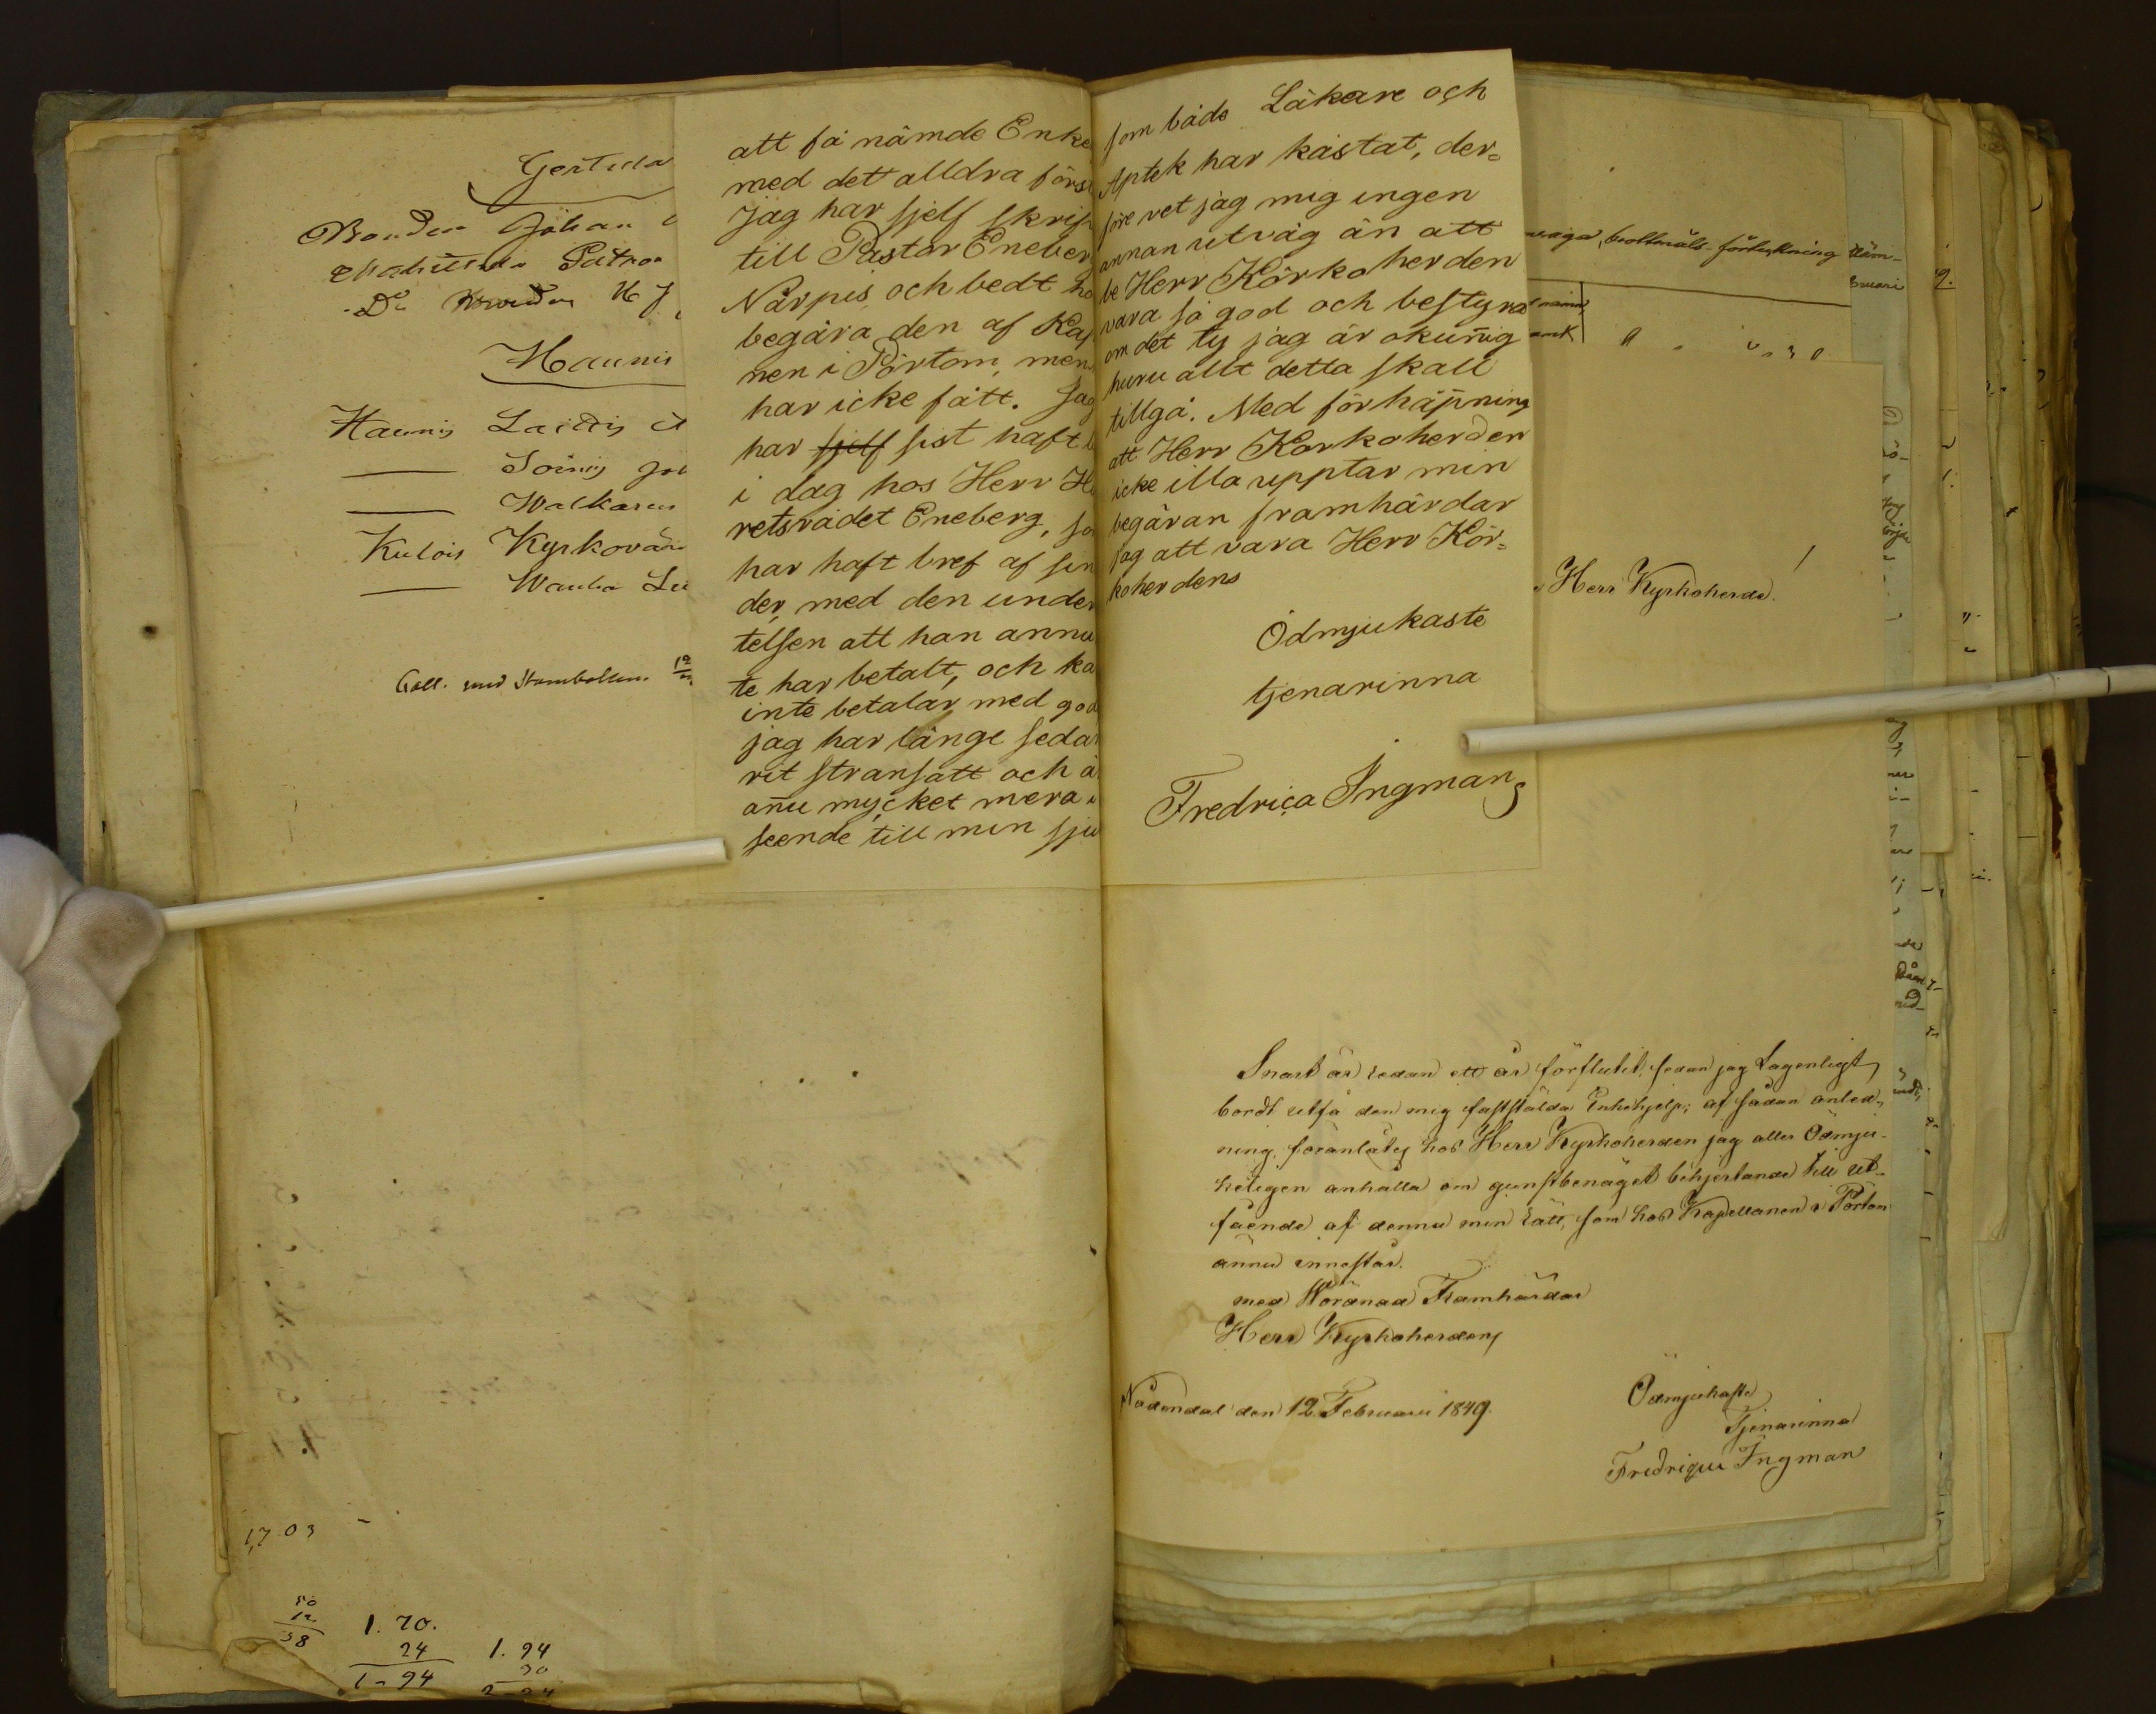 Gertula
Bonden Johan
Haunis
Haunis Laidis
Soinis
Walkares
Kulois Kyrkovär
Wanha
Coll. med Stombollen
17 03
50
12
38
1. 70.
24
1 - 94
1. 94
30
2 - 24
att få nämde Enke
med det alldra förs
Jag har sjelf skrif
till Pastor Eneber
Närpis, och bedt ho
begära den af Kap
nen i Pörtom, men
har icke fått. Jag
har sjelf sist haft b
i dag hos Herr H
retsrådet Eneberg, so
har haft bref af sin
der, med den under
telsen att han annu
te har betalt, och ka
inte betalar med god
jag har länge seda
rit stransatt och ä
añu mycket mera i
seende till min sju
som både Läkare och
Aptek har kåstat, der=
före vet jag mig ingen
annan utväg än att
be Herr Körkoherden
vara så god och bestyra
om det ty jag är okuñig
huru allt detta skall
tillgå. Med förhåpning
att Herr Korkoherden
icke illa upptar min
begäran framhärdar
jag att vara Herr Kör=
koherdens
Ödmjukaste
tjenarinna
Fredrica Ingman
förteckning
Herr Kyrkoherde!
Snart är redan ett år förflutit, sedan jag Lagenligt
bordt utfå den mig fastställda Enkehjelp; af sådan anled-
ning, föranlåtes hos Herr Kyrkoherden jag aller Ödmju-
keligen anhålla om gunstbenäget behjertande till ut-
fående af denna min rätt, som hos Kapellanen i Pörtom
ännu innestår.
med Wördnad Framhärdar
Herr Kyrkoherdens
Nådendal den 12 Februari 1849.
Ödmjukaste
Tjenarinna
Fredrique Ingman